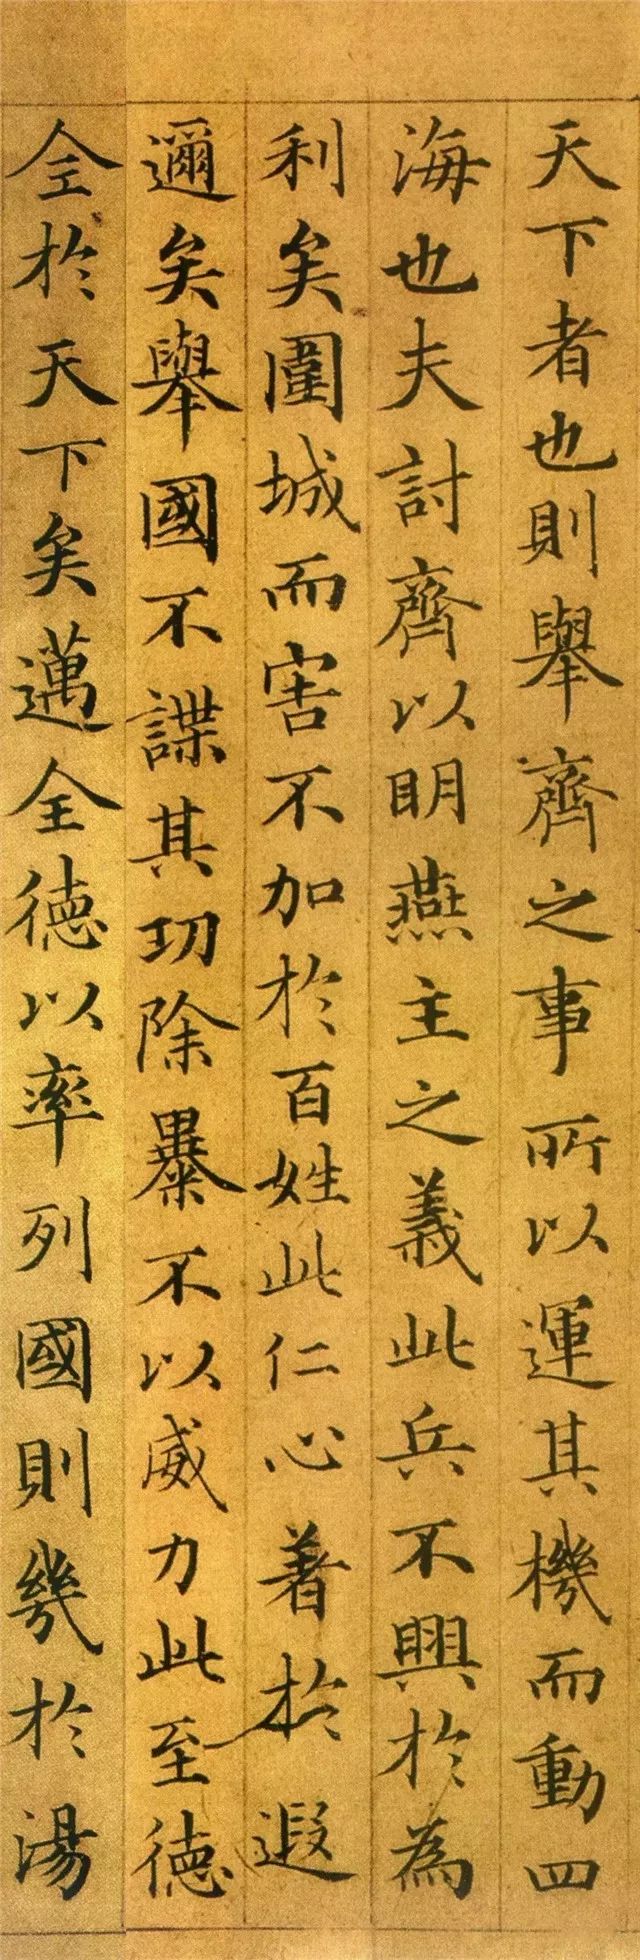 天下者也則舉齊之事所以運其機而動四
海也夫討齊以明燕主之義此兵不興於為
利矣圍城而害不加於百姓此仁心著於遐
邇矣舉國不諜其功除暴不以威力此至德
全於天下矣邁全德以率列國則幾於湯